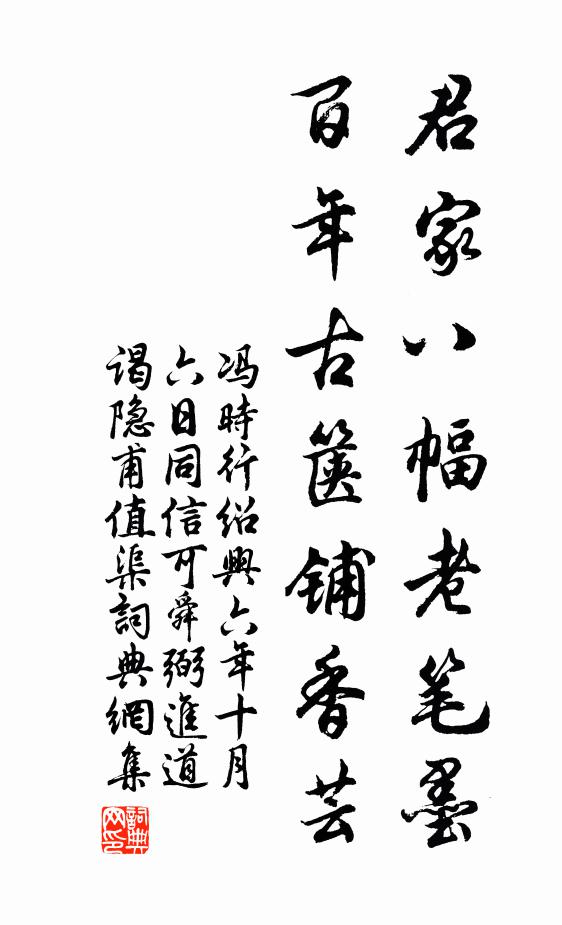 君家八幅老笔墨
百年古箧铺香芸
冯時行绍興六年十月
六日同信可舜弼進道
谒隐甫值渠詞典網集
詞典網印